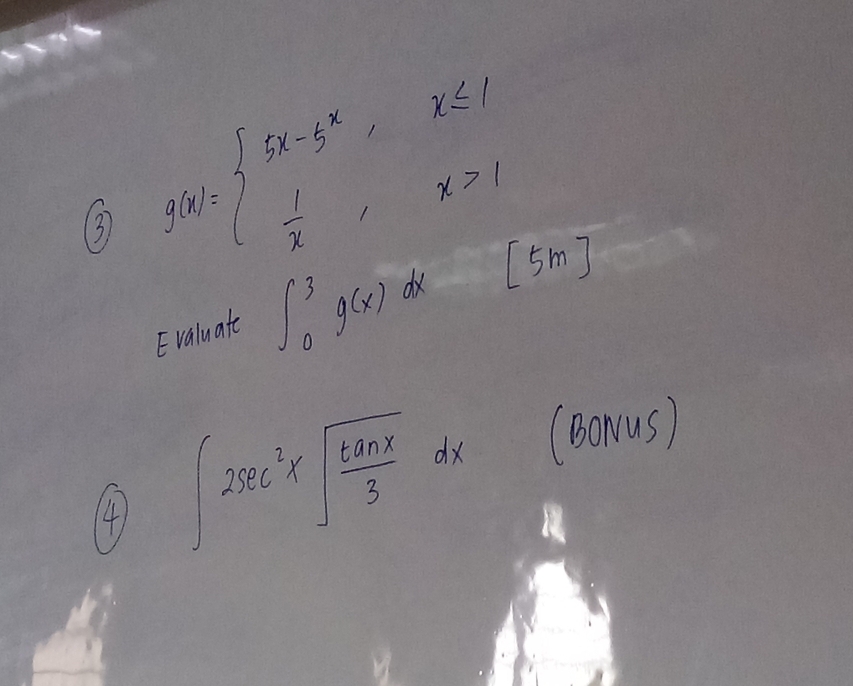 ③ g(x) = { 5x - 5ˣ , x ≤ 1
1/x , x > 1
Evaluate ∫₀³ g(x) dx [5m]
④ ∫ 2sec²x √(tanx/3) dx (BONUS)